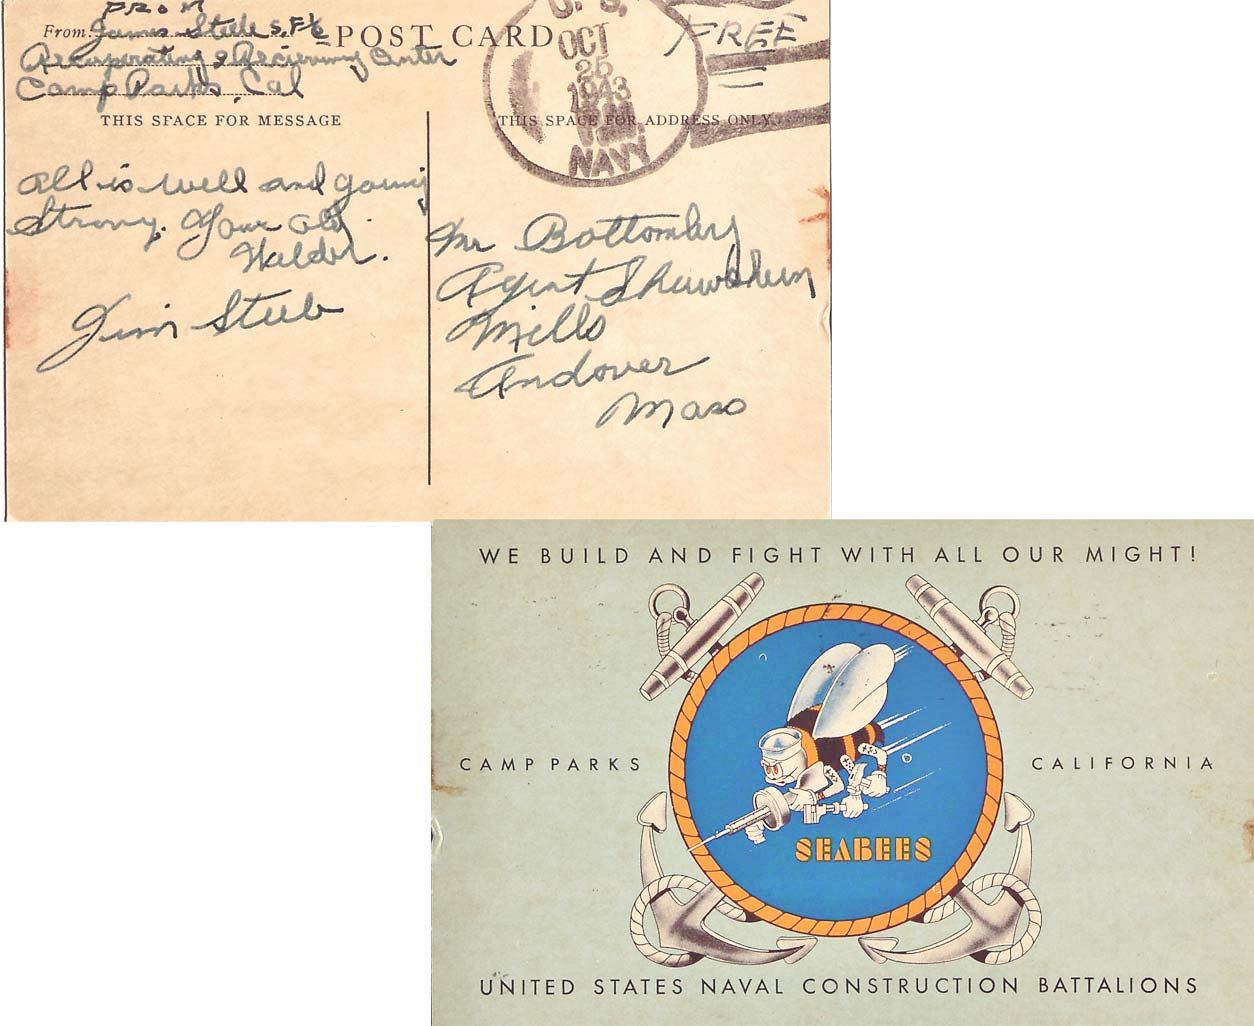 FROM
From: James Steele S.F.
Recuperating & Recieveing Center
Camp Parks, Cal
POST CARD
U.S.
OCT
25
1943
P.M.
NAVY
FREE
THIS SPACE FOR MESSAGE
THIS SPACE FOR ADDRESS ONLY
All is well and going
Strong. Your old
Welder.
Jim Steele
Mr Bottomley
Agent Shawsheen
Mills
Andover
Mass
WE BUILD AND FIGHT WITH ALL OUR MIGHT!
CAMP PARKS
CALIFORNIA
SEABEES
UNITED STATES NAVAL CONSTRUCTION BATTALIONS